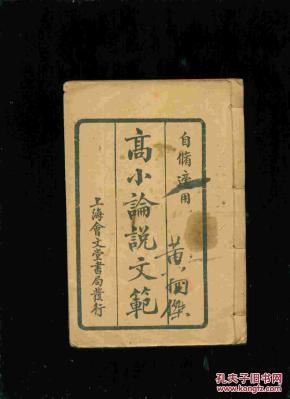 自脩適用
高小論說文範
上海會文堂書局發行
黃
傑
孔夫子旧书网